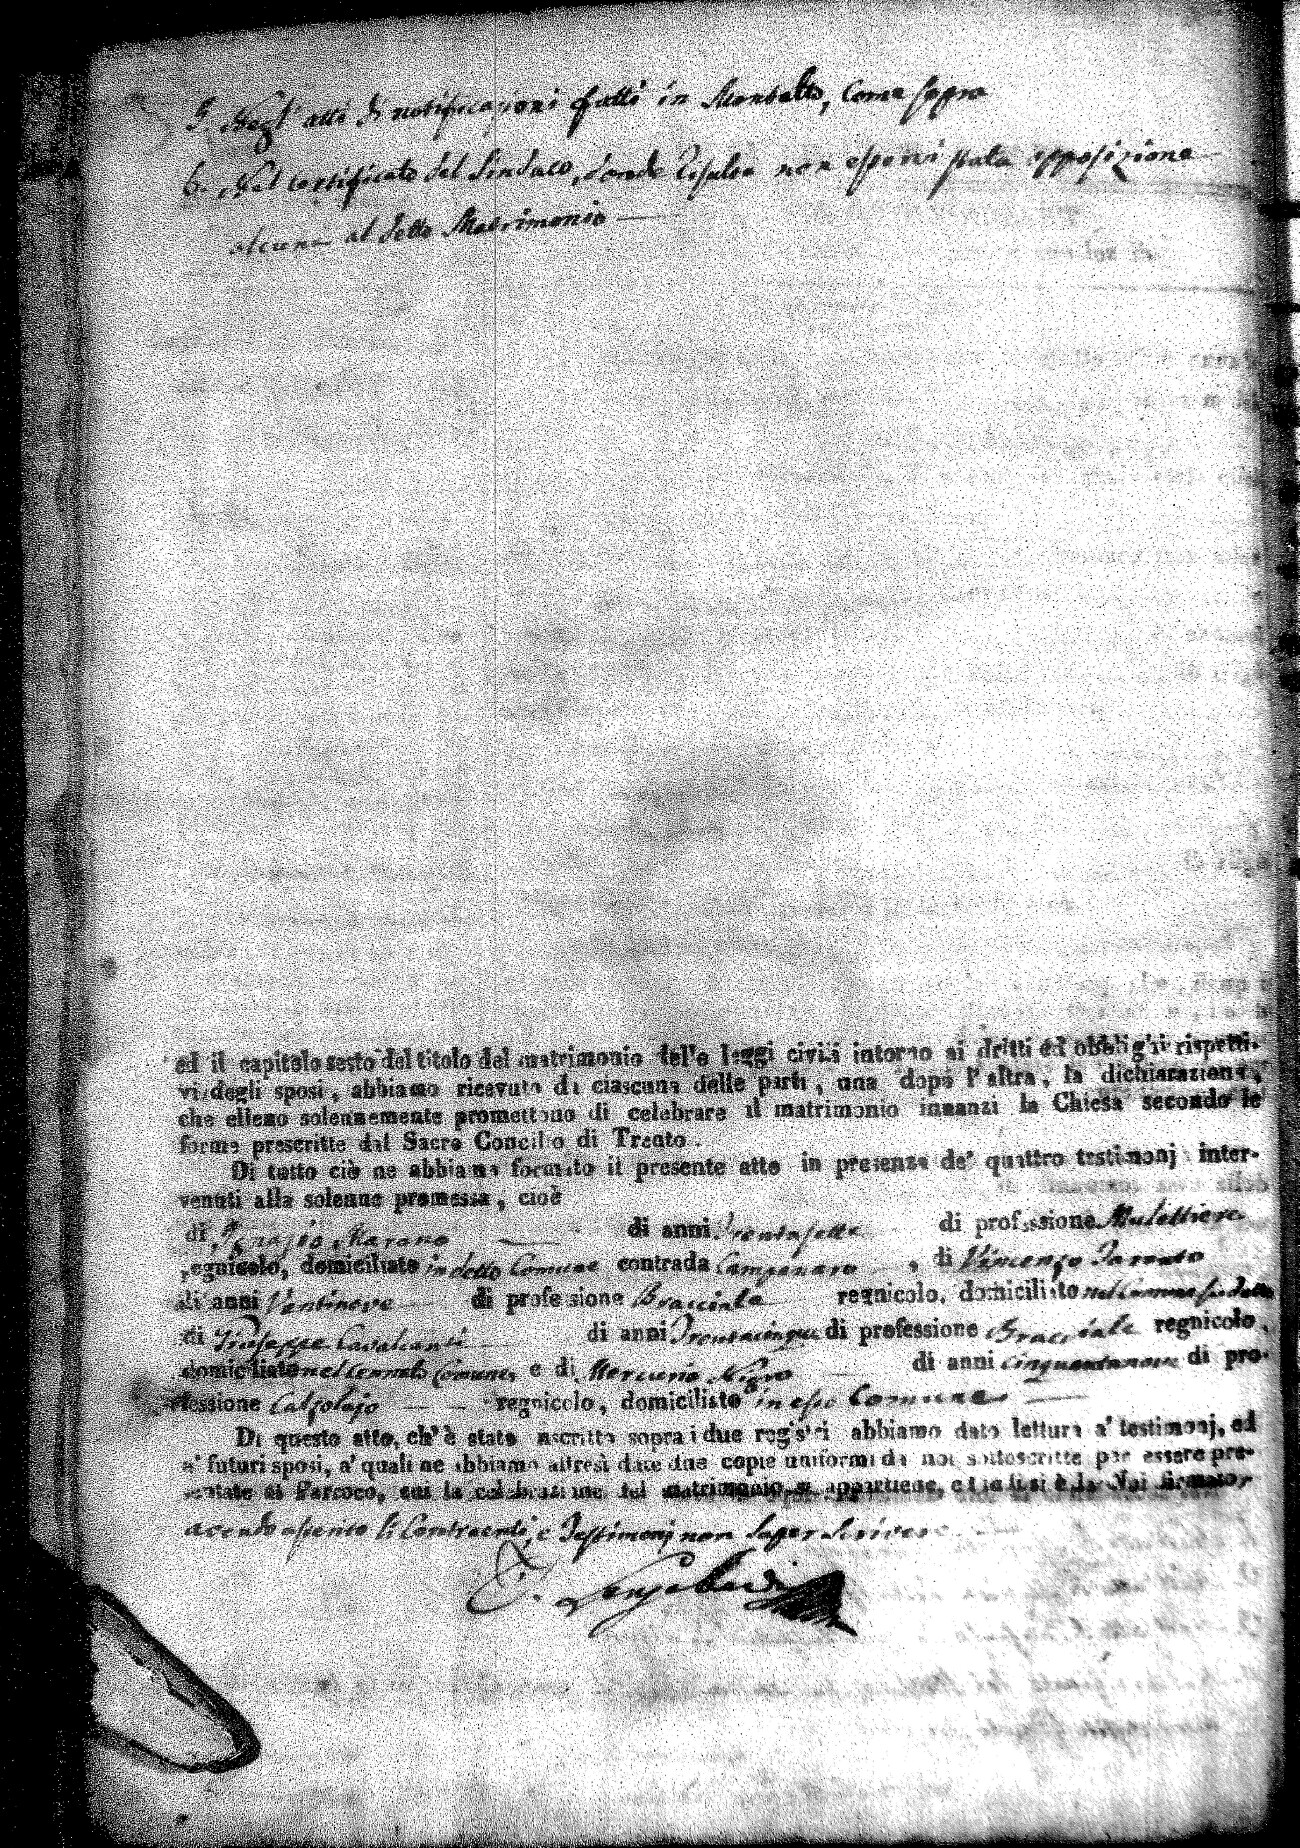 5. Degl' atti di notificazioni fatti in Montalto, come sopra
6. Dal certificato del Sindaco, donde risulta non esservi stata opposizione
alcuna al detto Matrimonio
ed il capitolo sesto del titolo del matrimonio delle leggi civili intorno ai dritti ed obblighi rispetti-
vi degli sposi, abbiamo ricevuto da ciascuna delle parti, una dopo l'altra, la dichiarazione,
che elleno solennemente promettono di celebrare il matrimonio innanzi la Chiesa secondo le
forme prescritte dal Sacro Concilio di Trento.
Di tutto ciò ne abbiamo formato il presente atto in presenza de' quattro testimonj inter-
venuti alla solenne promessa, cioè
di Marano di anni trentasette di professione Mulettiere
regnicolo, domiciliato in detto Comune contrada Campanaro, di Vincenzo
di anni Ventinove di professione Bracciale regnicolo, domiciliato nel Comune suddetto
di Giuseppe Cavalcanti di anni Trentacinque di professione Bracciale regnicolo,
domiciliato nel Comune, e di Mercurio Nigro di anni cinquantanove di pro-
fessione Calzolajo regnicolo, domiciliato in esso Comune
Di questo atto, ch' è stato ascritto sopra i due registri abbiamo dato lettura a' testimonj, ed
a' futuri sposi, a' quali ne abbiamo altresì date due copie uniformi da noi sottoscritte per essere pre-
sentate al Parroco, cui la celebrazione del matrimonio si appartiene, e indi si è da Noi firmato
avendo asserito li Contraenti, e Testimonj non saper scrivere